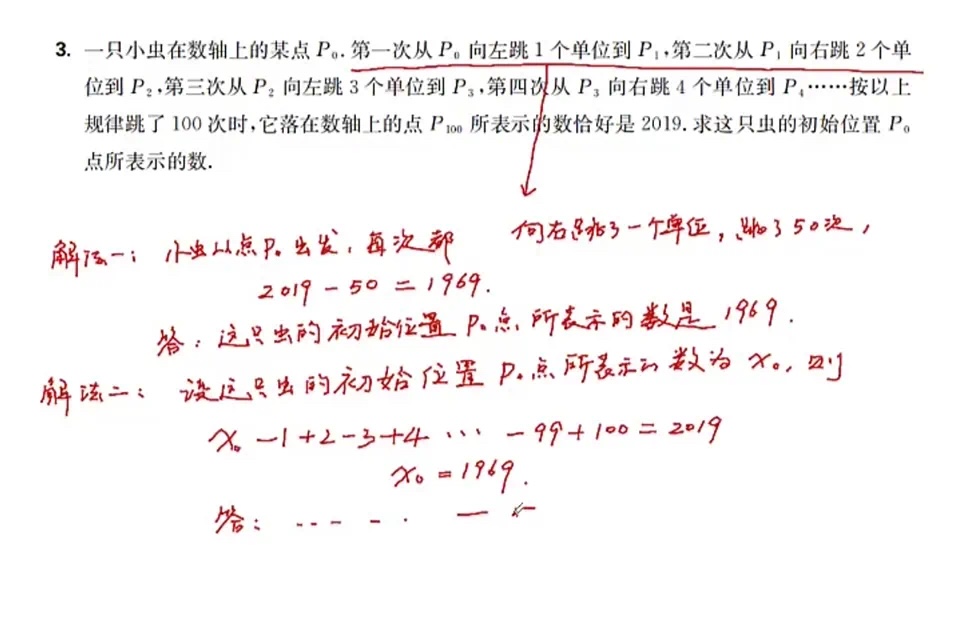 3. 一只小虫在数轴上的某点 P₀. 第一次从 P₀ 向左跳 1 个单位到 P₁,第二次从 P₁ 向右跳 2 个单
位到 P₂,第三次从 P₂ 向左跳 3 个单位到 P₃,第四次从 P₃ 向右跳 4 个单位到 P₄……按以上
规律跳了 100 次时,它落在数轴上的点 P₁₀₀ 所表示的数恰好是 2019. 求这只虫的初始位置 P₀
点所表示的数.
解法一: 小虫从点P₀出发, 每次都 向右跳了一个单位, 跳了50次,
2019 - 50 = 1969.
答: 这只虫的初始位置 P₀点所表示的数是 1969.
解法二: 设这只虫的初始位置 P₀点所表示的数为 x₀, 则
x₀ -1+2-3+4 … -99+100=2019
x₀ =1969.
答: … …